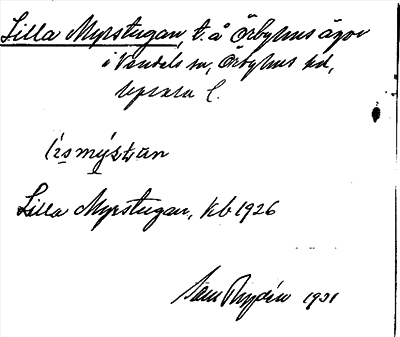 Lilla Myrstugan, t. å Örbyhus ägor
i Vendels sn, Örbyhus hd,
Uppsala l.
Lilla Myrstugan, kb 1926
Sam Rydin 1931